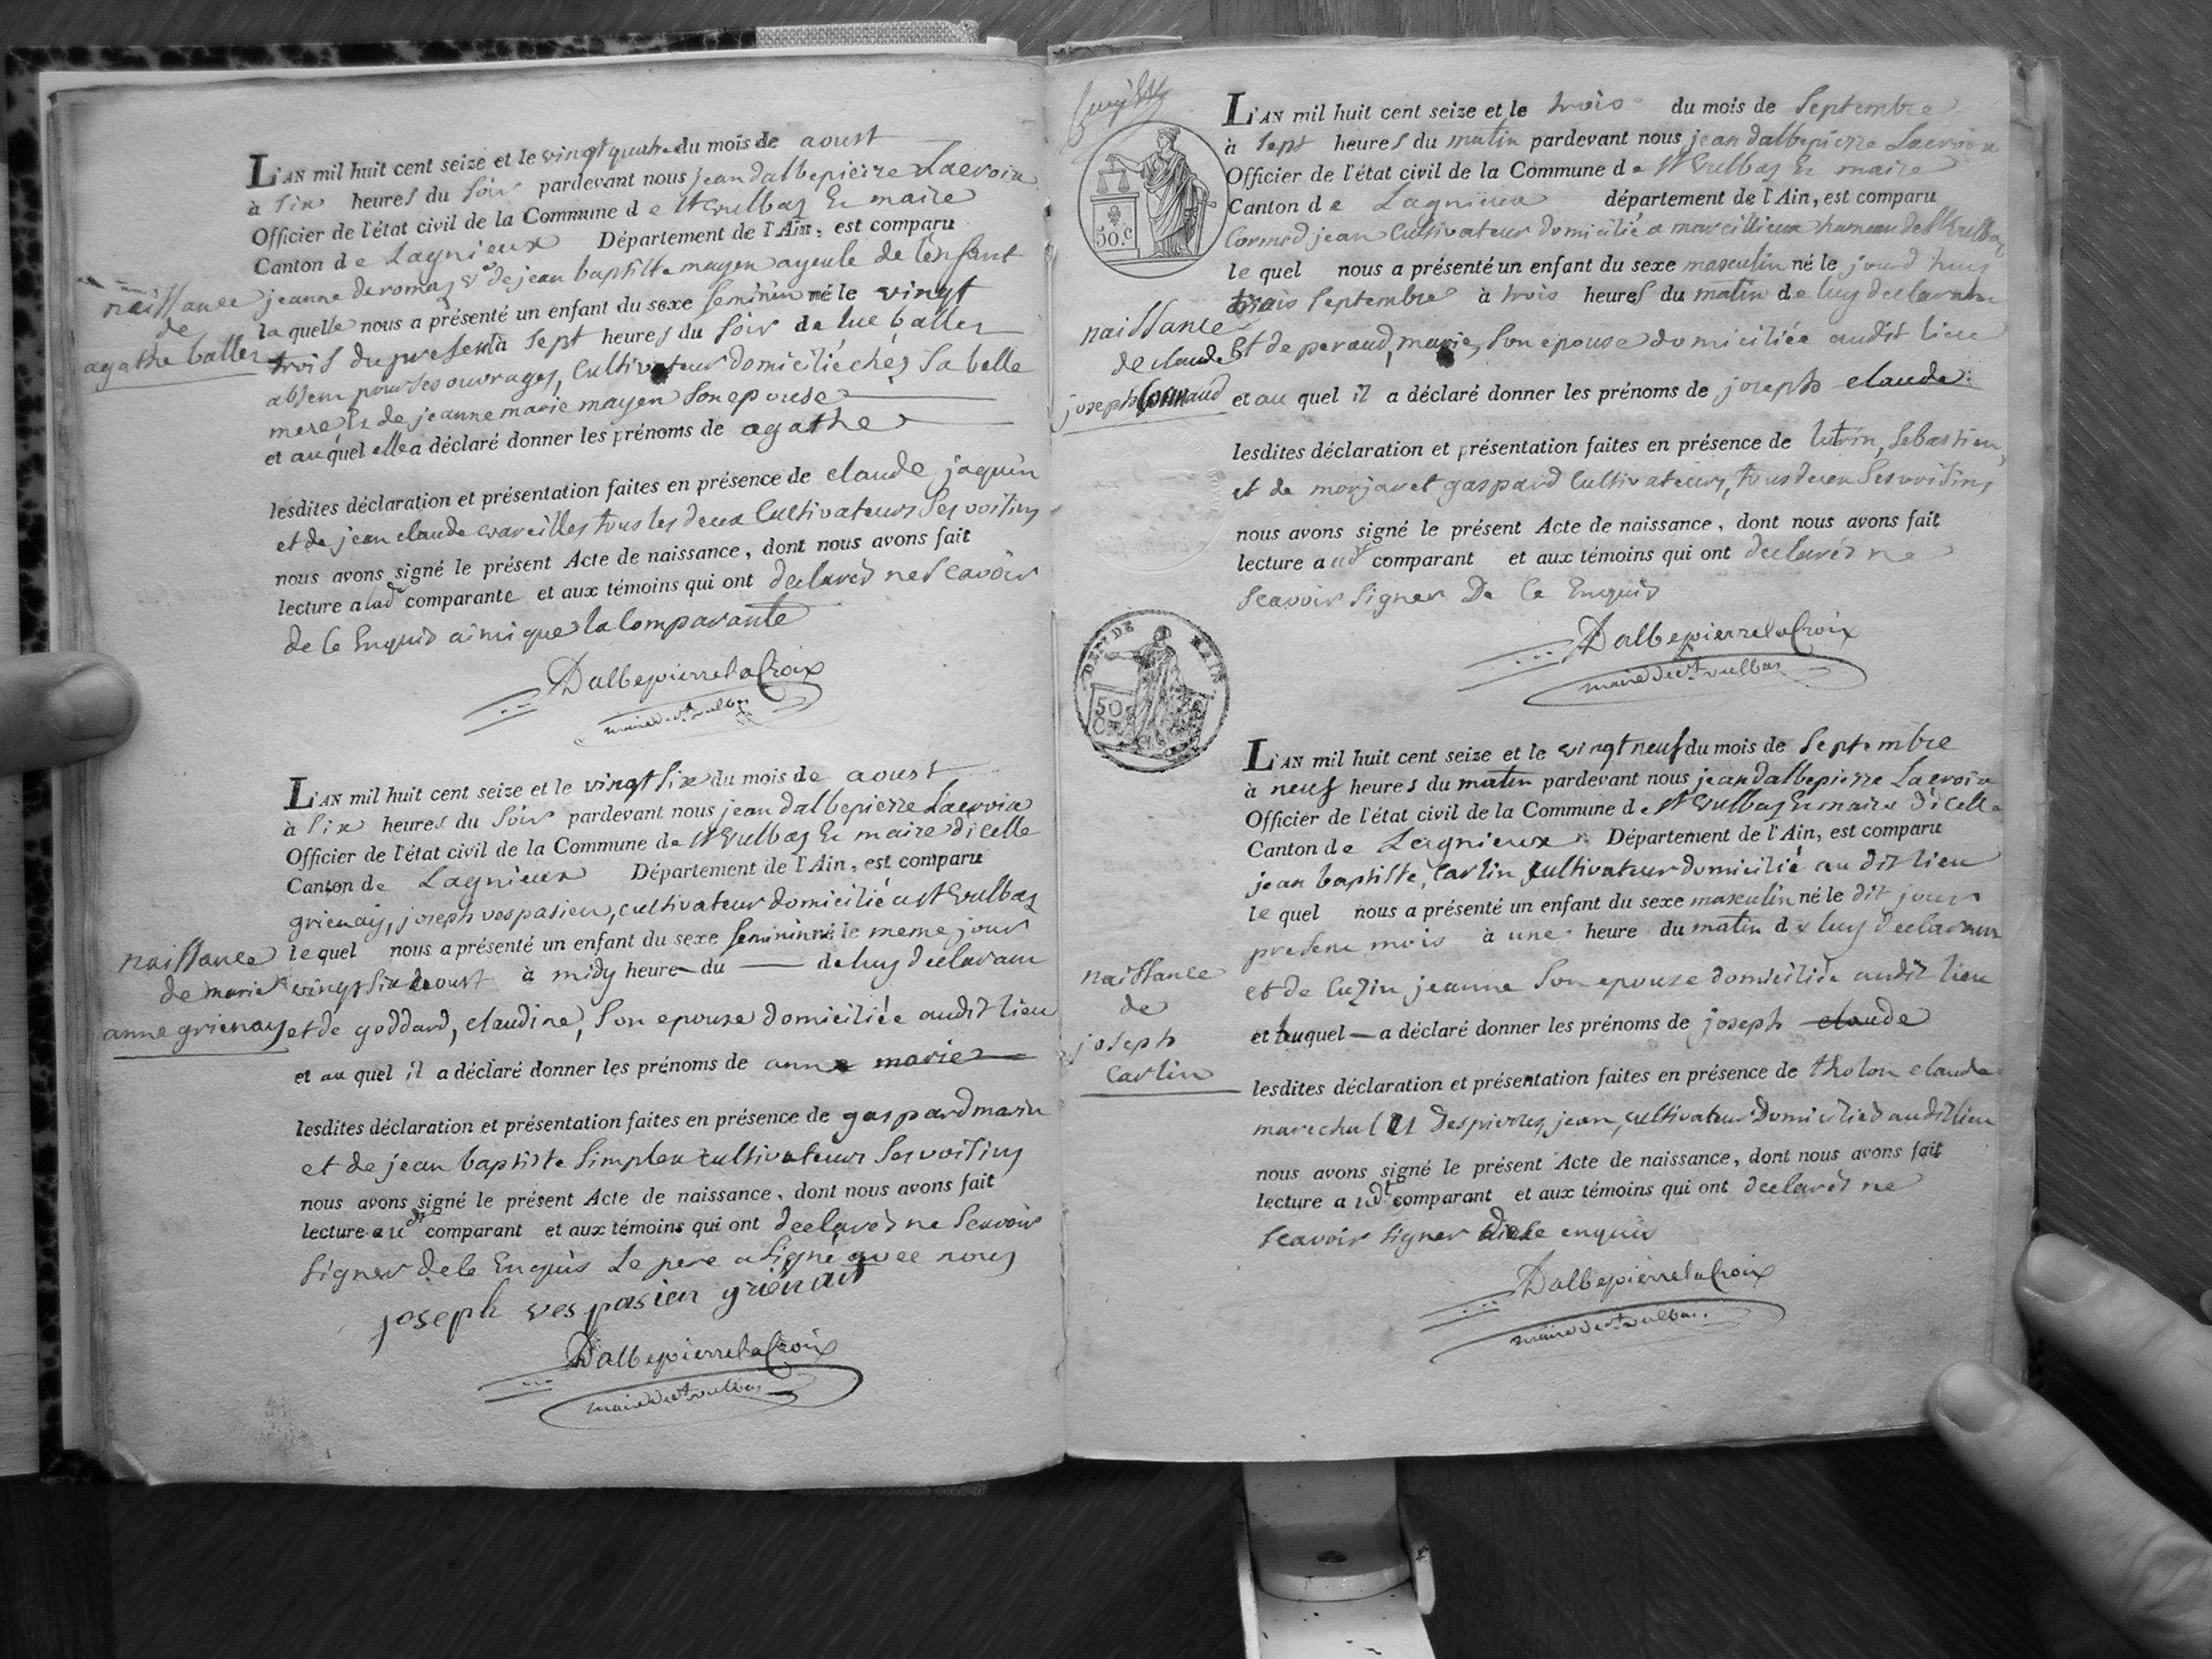 L'AN mil huit cent seize et le vingt quatre du mois de aoust
à six heures du soir pardevant nous jean dalbepierre Lacroix
Officier de l'état civil de la Commune de St Vulbas Et maire
Canton de Lagnieux Département de l'Ain, est comparu
jeanne deromas ve de jean baptiste mayen ayeule de l'enfant
naissance
de
agathe baller
la quelle nous a présenté un enfant du sexe feminin né le vingt
trois du present à sept heures du soir de luc baller
absent pour ses ouvrages, Cultivateur domicilié chés sa belle
mere Et de jeanne marie mayen son epouse
et au quel elle a déclaré donner les prénoms de agathe
lesdites déclaration et présentation faites en présence de claude jaquin
et de jean claude tous les deux Cultivateurs ses voisins
nous avons signé le présent Acte de naissance, dont nous avons fait
lecture a lade comparante et aux témoins qui ont declarés ne scavoir
de ce Enquis ainsi que la Comparante
Dalbepierre la Croix
maire de st vulbas
L'AN mil huit cent seize et le vingt six du mois de aoust
à six heures du soir pardevant nous jean dalbepierre Lacroix
Officier de l'état civil de la Commune de St Vulbas Et maire dicelle
Canton de Lagnieux Département de l'Ain, est comparu
grienay, joseph vespasien, cultivateur domicilié a st Vulbas
naissance
de marie
anne grienay
le quel nous a présenté un enfant du sexe feminin né le meme jour
vingt six aoust à midy heure du de luy declarant
et de goddard, claudine, son epouse domiciliée audit lieu
et au quel il a déclaré donner les prénoms de anne marie
lesdites déclaration et présentation faites en présence de gaspard marin
et de jean baptiste Simplex cultivateurs ses voisins
nous avons signé le présent Acte de naissance, dont nous avons fait
lecture au dt comparant et aux témoins qui ont declarés ne scavoir
signer de ce Enquis Le pere a signé avec nous
joseph vespasien grienait
Dalbepierre la Croix
maire de st vulbas
50.c
L'AN mil huit cent seize et le trois du mois de Septembre
à sept heures du matin pardevant nous jean dalbepierre Lacroix
Officier de l'état civil de la Commune de St Vulbas Et maire
Canton de Lagnieux département de l'Ain, est comparu
jean Cultivateur domicilié a marcillieux hameau de St Vulbas
le quel nous a présenté un enfant du sexe masculin né le jourd huy
trois Septembre à trois heures du matin de luy declarant
naissance
de claude
joseph
Et de peraud, marie, son epouse domiciliée audit lieu
et au quel il a déclaré donner les prénoms de joseph claude
lesdites déclaration et présentation faites en présence de lutrin, Sebastien,
et de monjaret gaspard Cultivateurs, tous deux ses voisins
nous avons signé le présent Acte de naissance, dont nous avons fait
lecture au dt comparant et aux témoins qui ont declarés ne
scavoir signer De Ce Enquis
Dalbepierre la Croix
maire de st vulbas
DEPT DE L'AIN
50
L'AN mil huit cent seize et le vingt neuf du mois de Septembre
à neuf heures du matin pardevant nous jean dalbepierre Lacroix
Officier de l'état civil de la Commune de St Vulbas Et maire d'icelle
Canton de Lagnieux Département de l'Ain, est comparu
jean baptiste, Carlin cultivateur domicilié au dit lieu
le quel nous a présenté un enfant du sexe masculin né le dit jour
present mois à une heure du matin de luy declarant
naissance
de
joseph
Carlin
et de Cuzin jeanne son epouse domiciliée audit lieu
et auquel a déclaré donner les prénoms de joseph claude
lesdites déclaration et présentation faites en présence de tholon claude
marechal et Despierres, jean, cultivateur Domiciliés audit lieu
nous avons signé le présent Acte de naissance, dont nous avons fait
lecture au dt comparant et aux témoins qui ont declarés ne
scavoir signer de ce enquis
Dalbepierre la Croix
maire de st vulbas